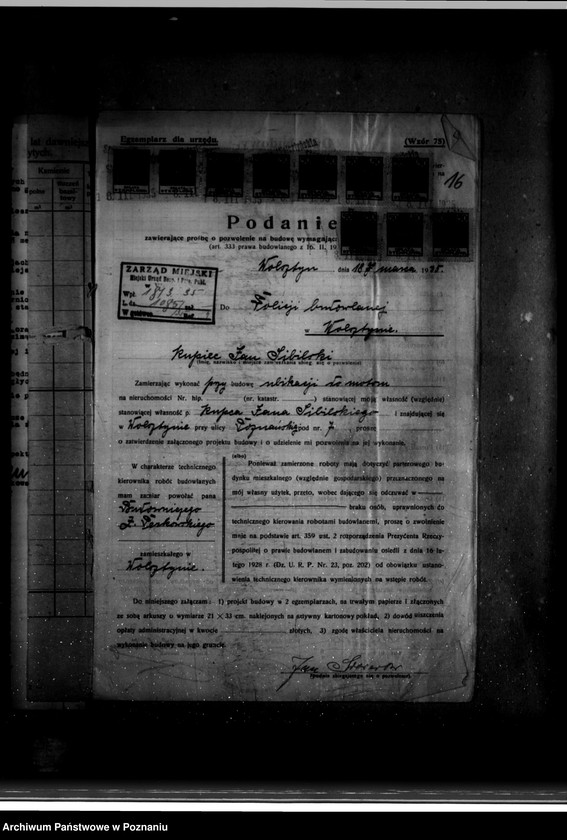 Egzemplarz dla urzędu.
(Wzór 75)
16
Podanie
zawierające prośbę o pozwolenie na budowę wymagając
(art. 333 prawa budowlanego z 16. II. 19
Wolsztyn dnia marca 19
ZARZĄD MIEJSKI
Wpł.
L. dz.
Do Policji budowlanej
w Wolsztynie.
Kupiec Jan Sibilski
(Imię, nazwisko i miejsce zamieszkania ubieg. się o pozwolenie)
Zamierzając wykonać przy budowę ubikacji
na nieruchomości Nr. hip. (nr. katastr. ) stanowiącej moją własność (względnie)
stanowiącej własność p. Kupca Jana Sibilskiego i znajdującej się
w Wolsztynie przy ulicy Poznańska pod nr. 7, proszę
o zatwierdzenie załączonego projektu budowy i o udzielenie mi pozwolenia na jej wykonanie.
W charakterze technicznego
kierownika robót budowlanych
mam zamiar powołać pana
Budowniczego
zamieszkałego w
Wolsztynie.
(albo)
Ponieważ zamierzone roboty mają dotyczyć parterowego bu-
dynku mieszkalnego (względnie gospodarczego) przeznaczonego na
mój własny użytek, przeto, wobec dającego się odczuwać w
braku osób, uprawnionych do
technicznego kierowania robotami budowlanemi, proszę o zwolnienie
mnie na podstawie art. 359 ust. 2 rozporządzenia Prezydenta Rzeczy-
pospolitej o prawie budowlanem i zabudowaniu osiedli z dnia 16 lute-
go 1928 r. (Dz. U. R. P. Nr. 23, poz. 202) od obowiązku ustano-
wienia technicznego kierownika wymienionych na wstępie robót.
Do niniejszego załączam: 1) projekt budowy w 2 egzemplarzach, na trwałym papierze i złączonych
ze sobą arkuszy o wymiarze 21 × 33 cm. naklejonych na sztywny kartonowy pokład, 2) dowód uiszczenia
opłaty administracyjnej w kwocie złotych, 3) zgodę właściciela nieruchomości na
wykonanie budowy na jego gruncie.
Jan
(podpis ubiegającego się o pozwolenie)
Archiwum Państwowe w Poznaniu